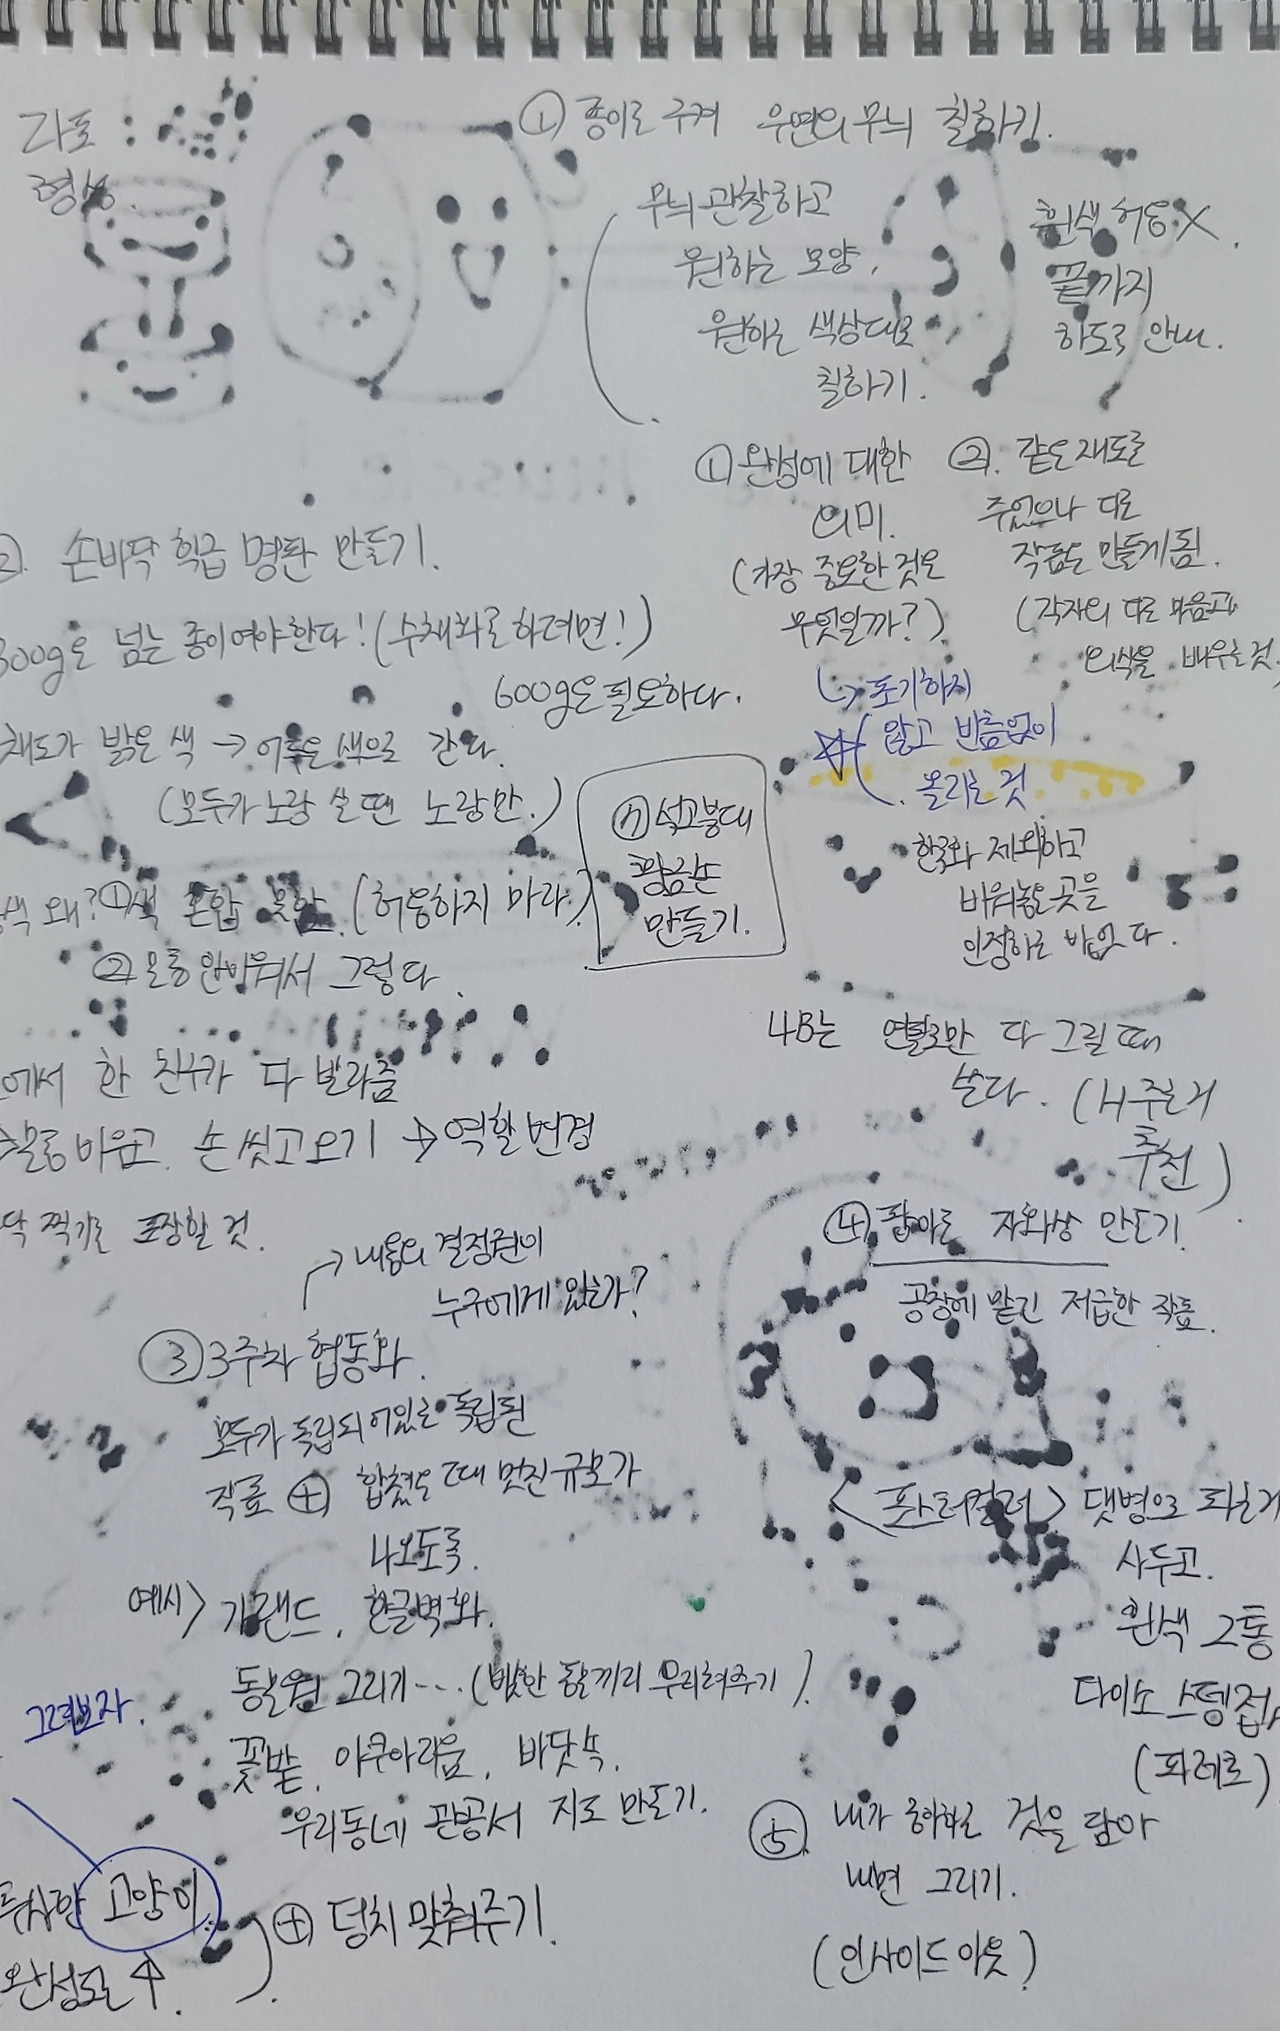 라포
형성.
① 종이로 구겨 우연의 무늬 칠하기.
무늬 관찰하고
원하는 모양,
원하는 색상대로
칠하기.
흰색 허용 X.
끝까지
하도록 안내.
① 완성에 대한
의미.
(가장 중요한 것은
무엇일까?)
↳ 포기하지
않고 빈틈없이
올리는 것
② 같은 재료를
주었으나 다른
작품을 만들게 됨.
(각자의 다른 마음과
의식을 배우는 것.
한국화 제외하고
비워놓은 곳을
인정하는 바 없다.
② 손바닥 학급 명판 만들기.
300g은 넘는 종이여야 한다! (수채화로 하려면!)
600g은 필요하다.
채도가 밝은 색 → 어두운 색으로 간다.
(모두가 노랑 쓸 땐 노랑만.)
색 왜? ① 색 혼합 못함. (허용하지 마라.)
② 물통 안 비워서 그렇다.
에서 한 친구가 다 발라줌
물통 비우고, 손 씻고 오기 → 역할 변경
찍기를 포장할 것.
⑦ 석고붕대
황금손
만들기.
4B는 연필로만 다 그릴 때
쓴다. (H 주는거
추천)
④ 팝아트 자화상 만들기.
공장에 맡긴 저급한 작품.
<포스터컬러> 댓병으로 파는거
사두고.
흰색 2통
다이소 스텡접
(파레트)
→ 내용의 결정권이
누구에게 있는가?
③ 3주차 협동화.
모두가 독립되어있는 독립된
작품 ⊕ 합쳤을 때 멋진 규모가
나오도록.
예시> 가랜드, 한글벽화.
동물원 그리기... (비슷한 동물끼리 무리 려주기).
꽃밭, 아쿠아리움, 바닷속.
우리동네 관공서 지도 만들기.
⊕ 덩치 맞춰주기.
그려보자.
고양이
완성도 ↑.
⑤ 내가 좋아하는 것을 담아
내면 그리기.
(인사이드 아웃)